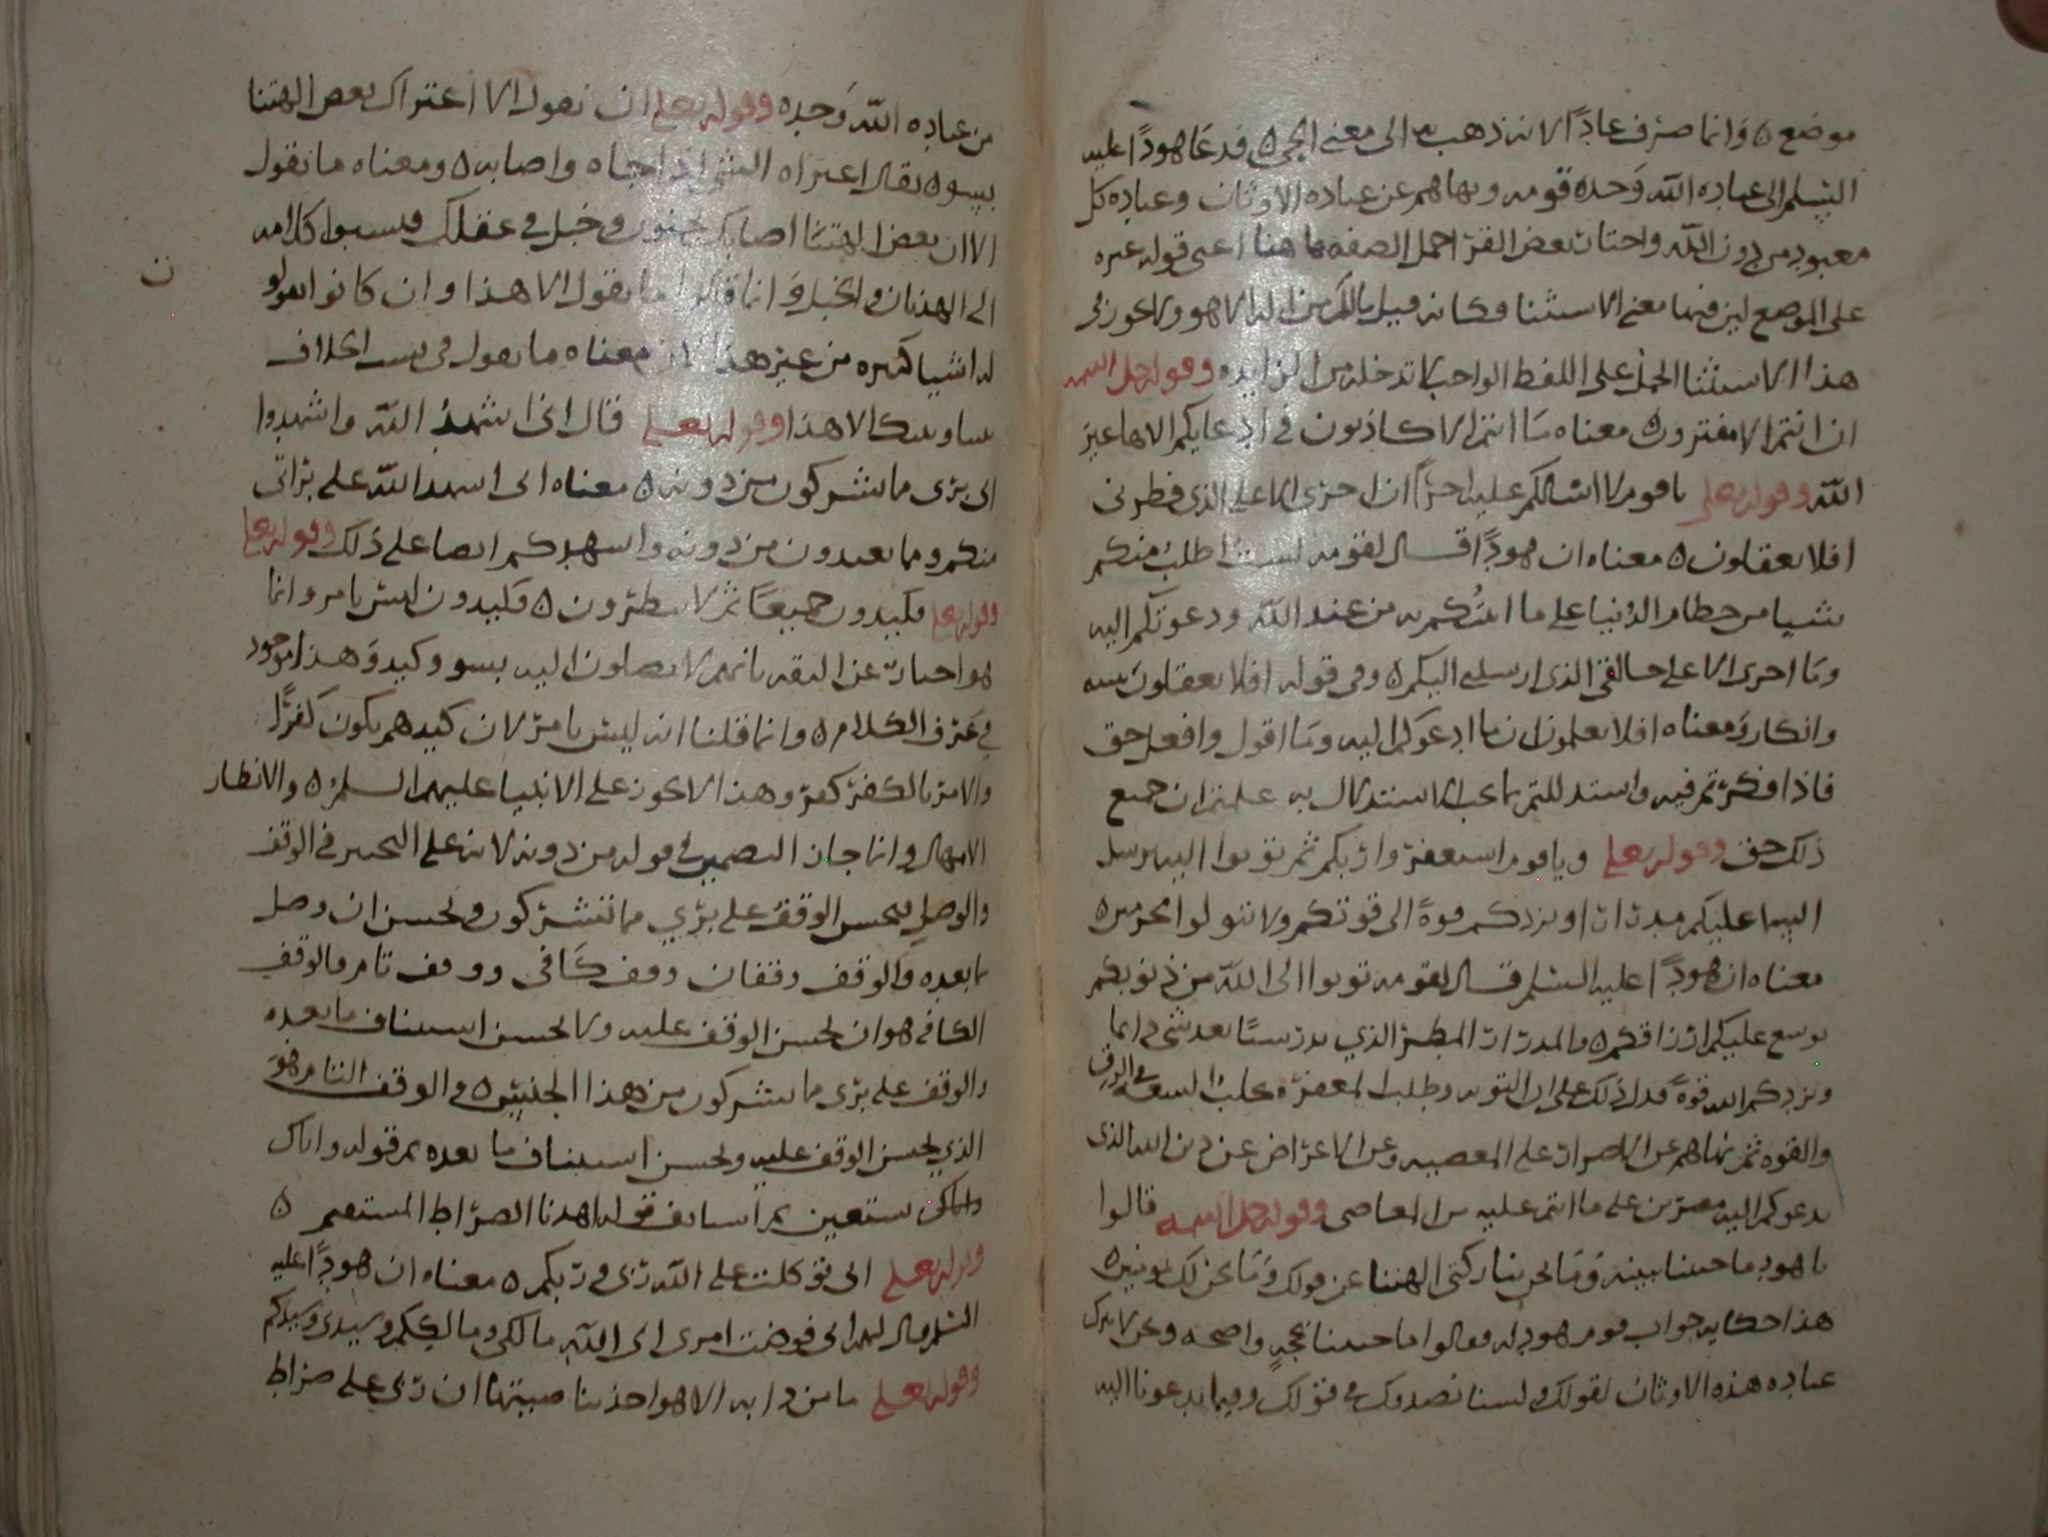 موضع ه وانما صرف عادًا لانه ذهب به الى معنى الحي ه فدعا هودًا عليه
السلم الى عباده الله وحده قومه ونهاهم عن عباده الاوثان وعباده كل
معبود من دون الله واختار بعض القرا حمل الصفه هاهنا اعنى قوله غيره
على الموضع لين فيها معنى الاستثنا وكانه قيل مالكم من اله الا هو ولا يجوز فى
هذا الاستثنا الحمل على اللفظ الواحب لا تدخله من الزايده وقوله جل اسمه
ان انتم الا مفترون ه معناه ما انتم الا كاذبون فى ادعايكم الاها غير
الله وقوله تعلى يا قوم لا اسالكم عليه اجرًا ان اجرى الا على الذى فطرنى
افلا تعقلون ه معناه ان هودًا قال لقومه لست اطلب منكم
شيا من حطام الدنيا على ما اتيتكم به من عند الله ودعوتكم اليه
وما اجرى الا على خالقى الذى ارسلنى اليكم ه وفى قوله افلا تعقلون تنبيه
وانكار ومعناه افلا تعلمون ان ما ادعوكم اليه وما اقول وافعل حق
فاذا فكرتم فيه واستدللتم بما يجب الاستدلال به علمتم ان جميع
ذلك حق وقوله تعلى ويا قوم استغفروا ربكم ثم توبوا اليه يرسل
السما عليكم مدرارا ويزدكم قوة الى قوتكم ولا تتولوا مجرمين ه
معناه ان هودًا عليه السلم قال لقومه توبوا الى الله من ذنوبكم
يوسع عليكم ارزاقكم ه والمدرار المطر الذي يدر شيًا بعد شى دايما
ويزدكم الله قوة فدل ذلك على ان التوبه وطلب المغفره يجلب السعه فى الرزق
والقوه ثم نهاهم عن الاصرار على المعصيه وعن الاعراض عن دين الله الذى
يدعوكم اليه مصرين على ما انتم عليه من المعاصى وقوله جل اسمه قالوا
يا هود ما جيتنا ببينه وما نحن بتاركى الهتنا عن قولك وما نحن لك بمومنين ه
هذا حكايه جواب قوم هود له فقالوا ما جيتنا بحجه واضحه ونحن لا نترك
عباده هذه الاوثان لقولك ولسنا نصدوك فى قولك وفيما تدعونا اليه
من عباده الله وحده وقوله تعلى ان نقول الا اعتراك بعض الهتنا
بسو ه يقال اعتراه الشى اذا جاه واصابه ه ومعناه ما نقول
الا ان بعض الهتنا اصابك بجنون وخبل فى عقلك فنسبوا كلامه
الى الهذيان والخبل وانما قالوا ما نقول الا هذا وان كانوا يقولو
له اشيا كثيره من غير هذا لان معناه ما نقول فى سبب الخلاف
بيننا وبينك الا هذا وقوله تعلى قال انى اشهد الله واشهدوا
انى برى مما تشركون من دونه ه معناه انى اشهد الله على براتى
منكم ومما تعبدون من دونه واشهدكم ايضا على ذلك وقوله تعلى
وقوله تعلى فكيدون جميعًا ثم لا تنظرون ه فكيدون ليس بامر وانما
هو اخبار عن الثقه بانهم لا يصلون اليه بسو وكيد وهذا موجود
فى عرف الكلام ه وانما قلنا انه ليس بامر لان كيدهم يكون كفرًا
والامر بالكفر كفر وهذا لا يجوز على الانبيا عليهم السلم ه والانظار
الامهال وانما جاز التضمين فى قوله من دونه لانه على التخيير فى الوقف
والوصل فيحسن الوقف على بري مما تشركون ويحسن ان وصل
بما بعده والوقف وقفان وقف كافى ووقف تام فالوقف
الكافى هو ان يحسن الوقف عليه ولا يحسن استيناف ما بعده
والوقف على برى مما تشركون من هذا الجنس ه والوقف التام هو
الذي يحسن الوقف عليه ويحسن استيناف ما بعده نحو قوله واياك
واياك نستعين ثم استانف قوله اهدنا الصراط المستقيم ه
وقوله تعلى انى توكلت على الله ربى وربكم ه معناه ان هودًا عليه
السلم قال لهم انى فوضت امرى الى الله مالكى ومالككم وسيدى وسيدكم
وقوله تعلى ما من دابه الا هو اخذ بناصيتها ان ربي على صراط
ن